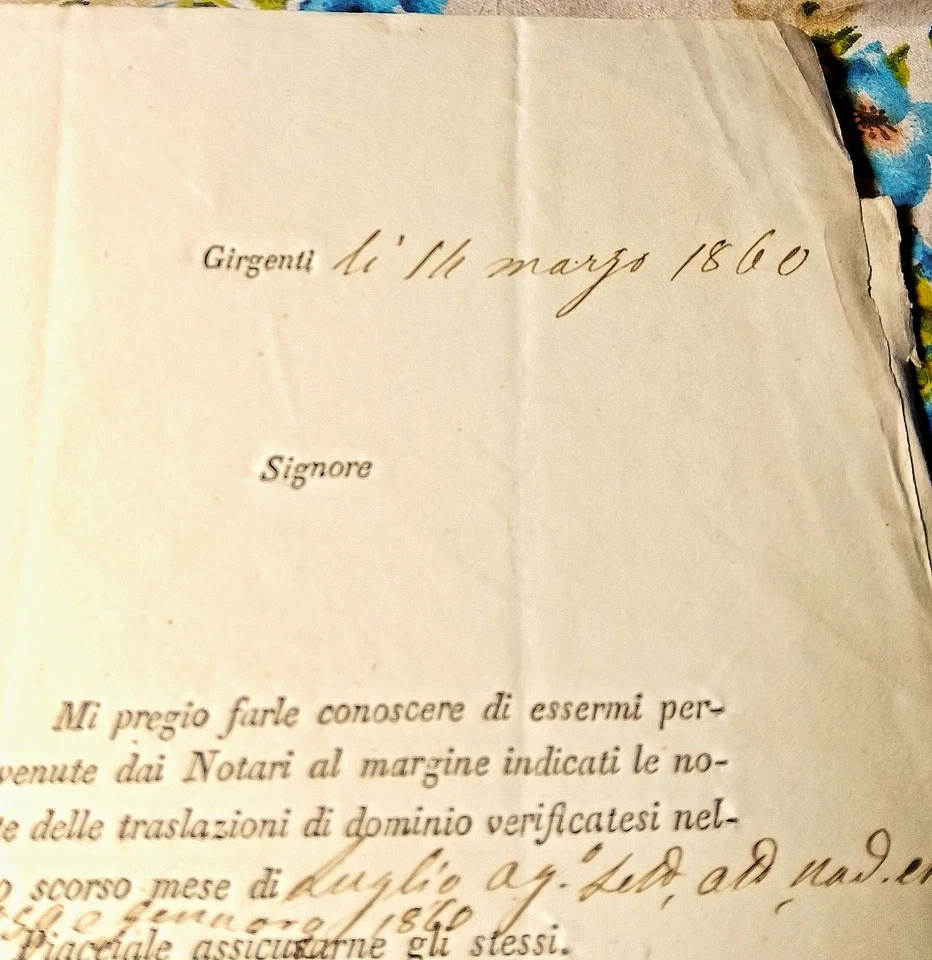 Girgenti li 14 marzo 1860
Signore
Mi pregio farle conoscere di essermi per-
venute dai Notari al margine indicati le no-
te delle traslazioni di dominio verificatesi nel-
o scorso mese di Luglio ag.º
e Gennaro 1860
Piacciale assicurarne gli stessi.